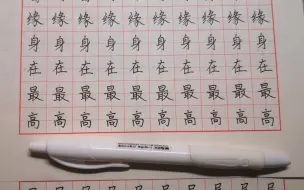 缘缘缘缘缘缘缘缘
身身身身身身身身
在在在在在在在在
最最最最最最最最
高高高高高高高高